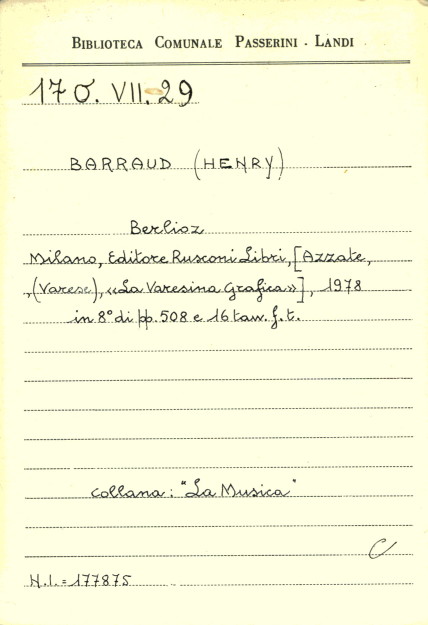 BIBLIOTECA COMUNALE PASSERINI - LANDI
170. VII. 29
BARRAUD (HENRY)
Berlioz
Milano, Editore Rusconi Libri, [Azzate,
,(Varese), «La Varesina Grafica»], 1978
in 8° di pp. 508 e 16 tav. f. t.
collana: "La Musica"
C
N.I. = 177875